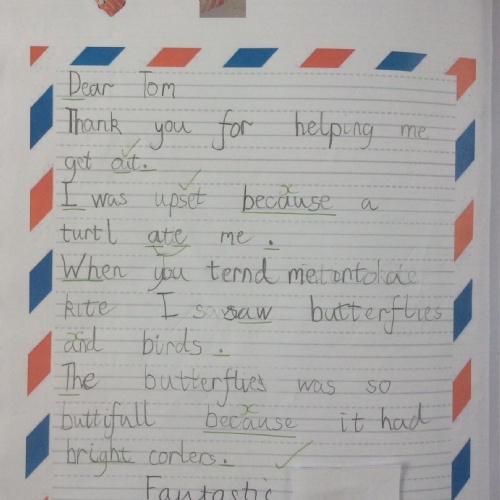 Dear Tom
Thank you for helping me
get out.
I was upset because a
turtl ate me .
When you ternd me
kite I saw butterflies
and birds .
The butterflies was so
buttifull because it had
bright corlers.
Fantastic